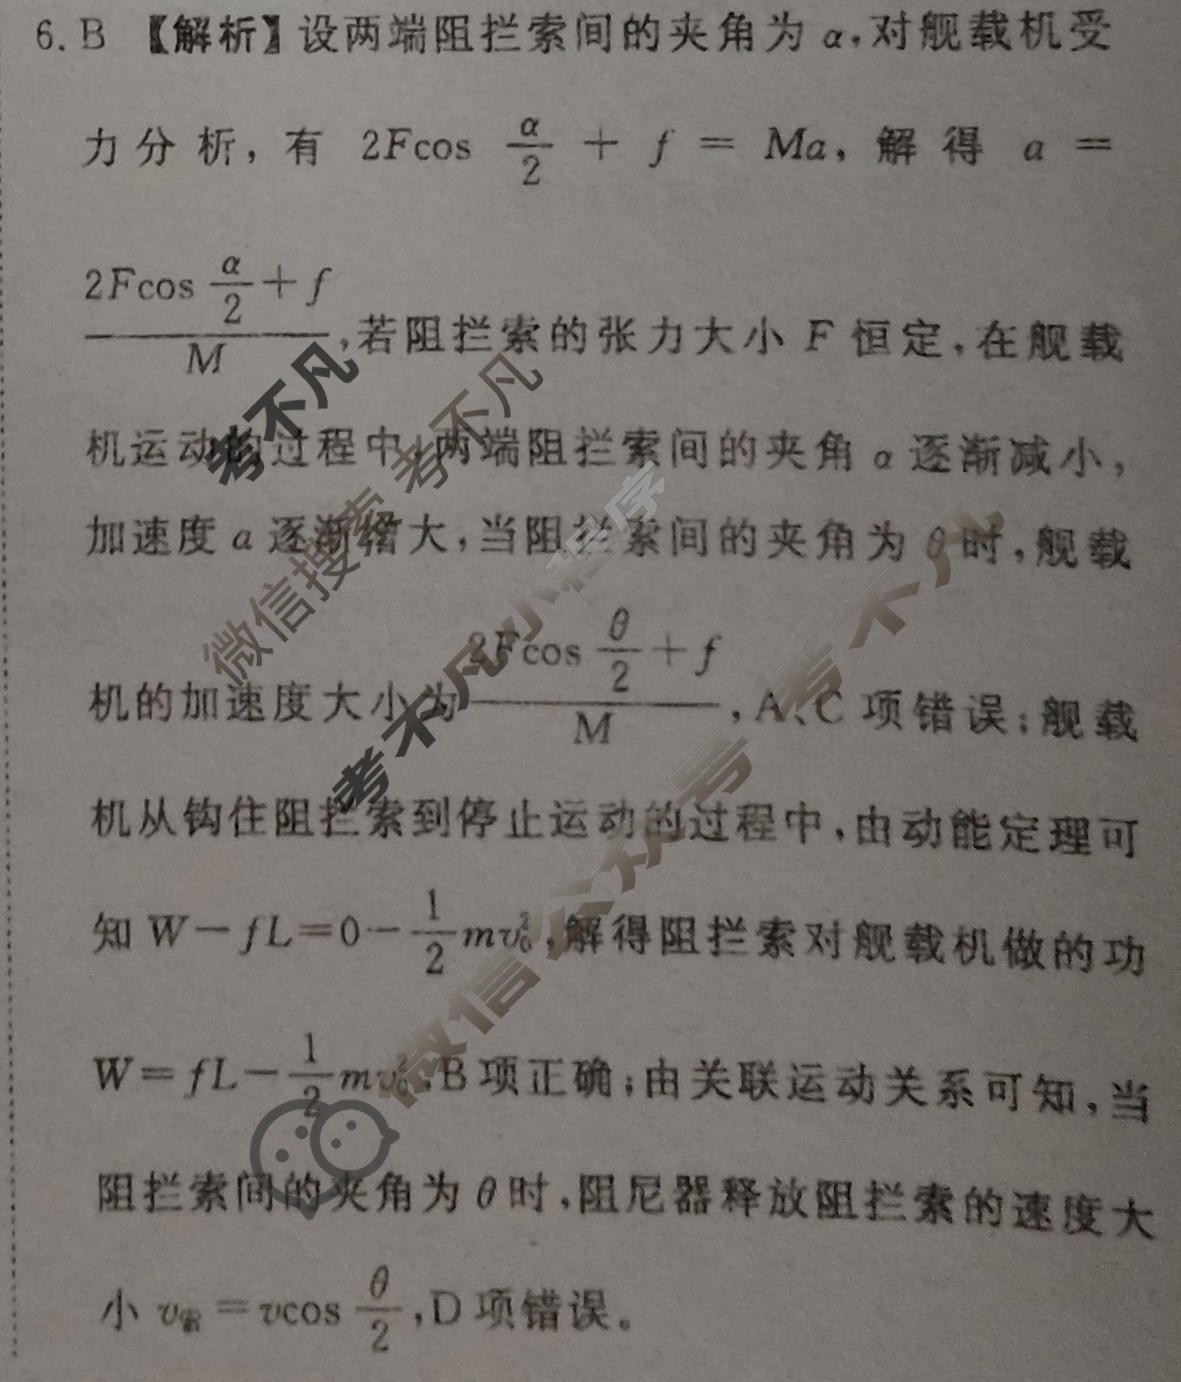 6. B 【解析】设两端阻拦索间的夹角为 α,对舰载机受
力分析,有 2Fcos α/2 + f = Ma,解得 a =
(2Fcos α/2 + f)/M,若阻拦索的张力大小 F 恒定,在舰载
机运动的过程中,两端阻拦索间的夹角 α 逐渐减小,
加速度 a 逐渐增大,当阻拦索间的夹角为 θ 时,舰载
机的加速度大小为 (2Fcos θ/2 + f)/M,A、C 项错误;舰载
机从钩住阻拦索到停止运动的过程中,由动能定理可
知 W-fL=0-1/2 mv₀²,解得阻拦索对舰载机做的功
W=fL-1/2 mv₀²,B 项正确;由关联运动关系可知,当
阻拦索间的夹角为 θ 时,阻尼器释放阻拦索的速度大
小 v索=vcos θ/2,D 项错误。
考不凡
微信搜索 考不凡
考不凡小程序
微信公众号 考不凡